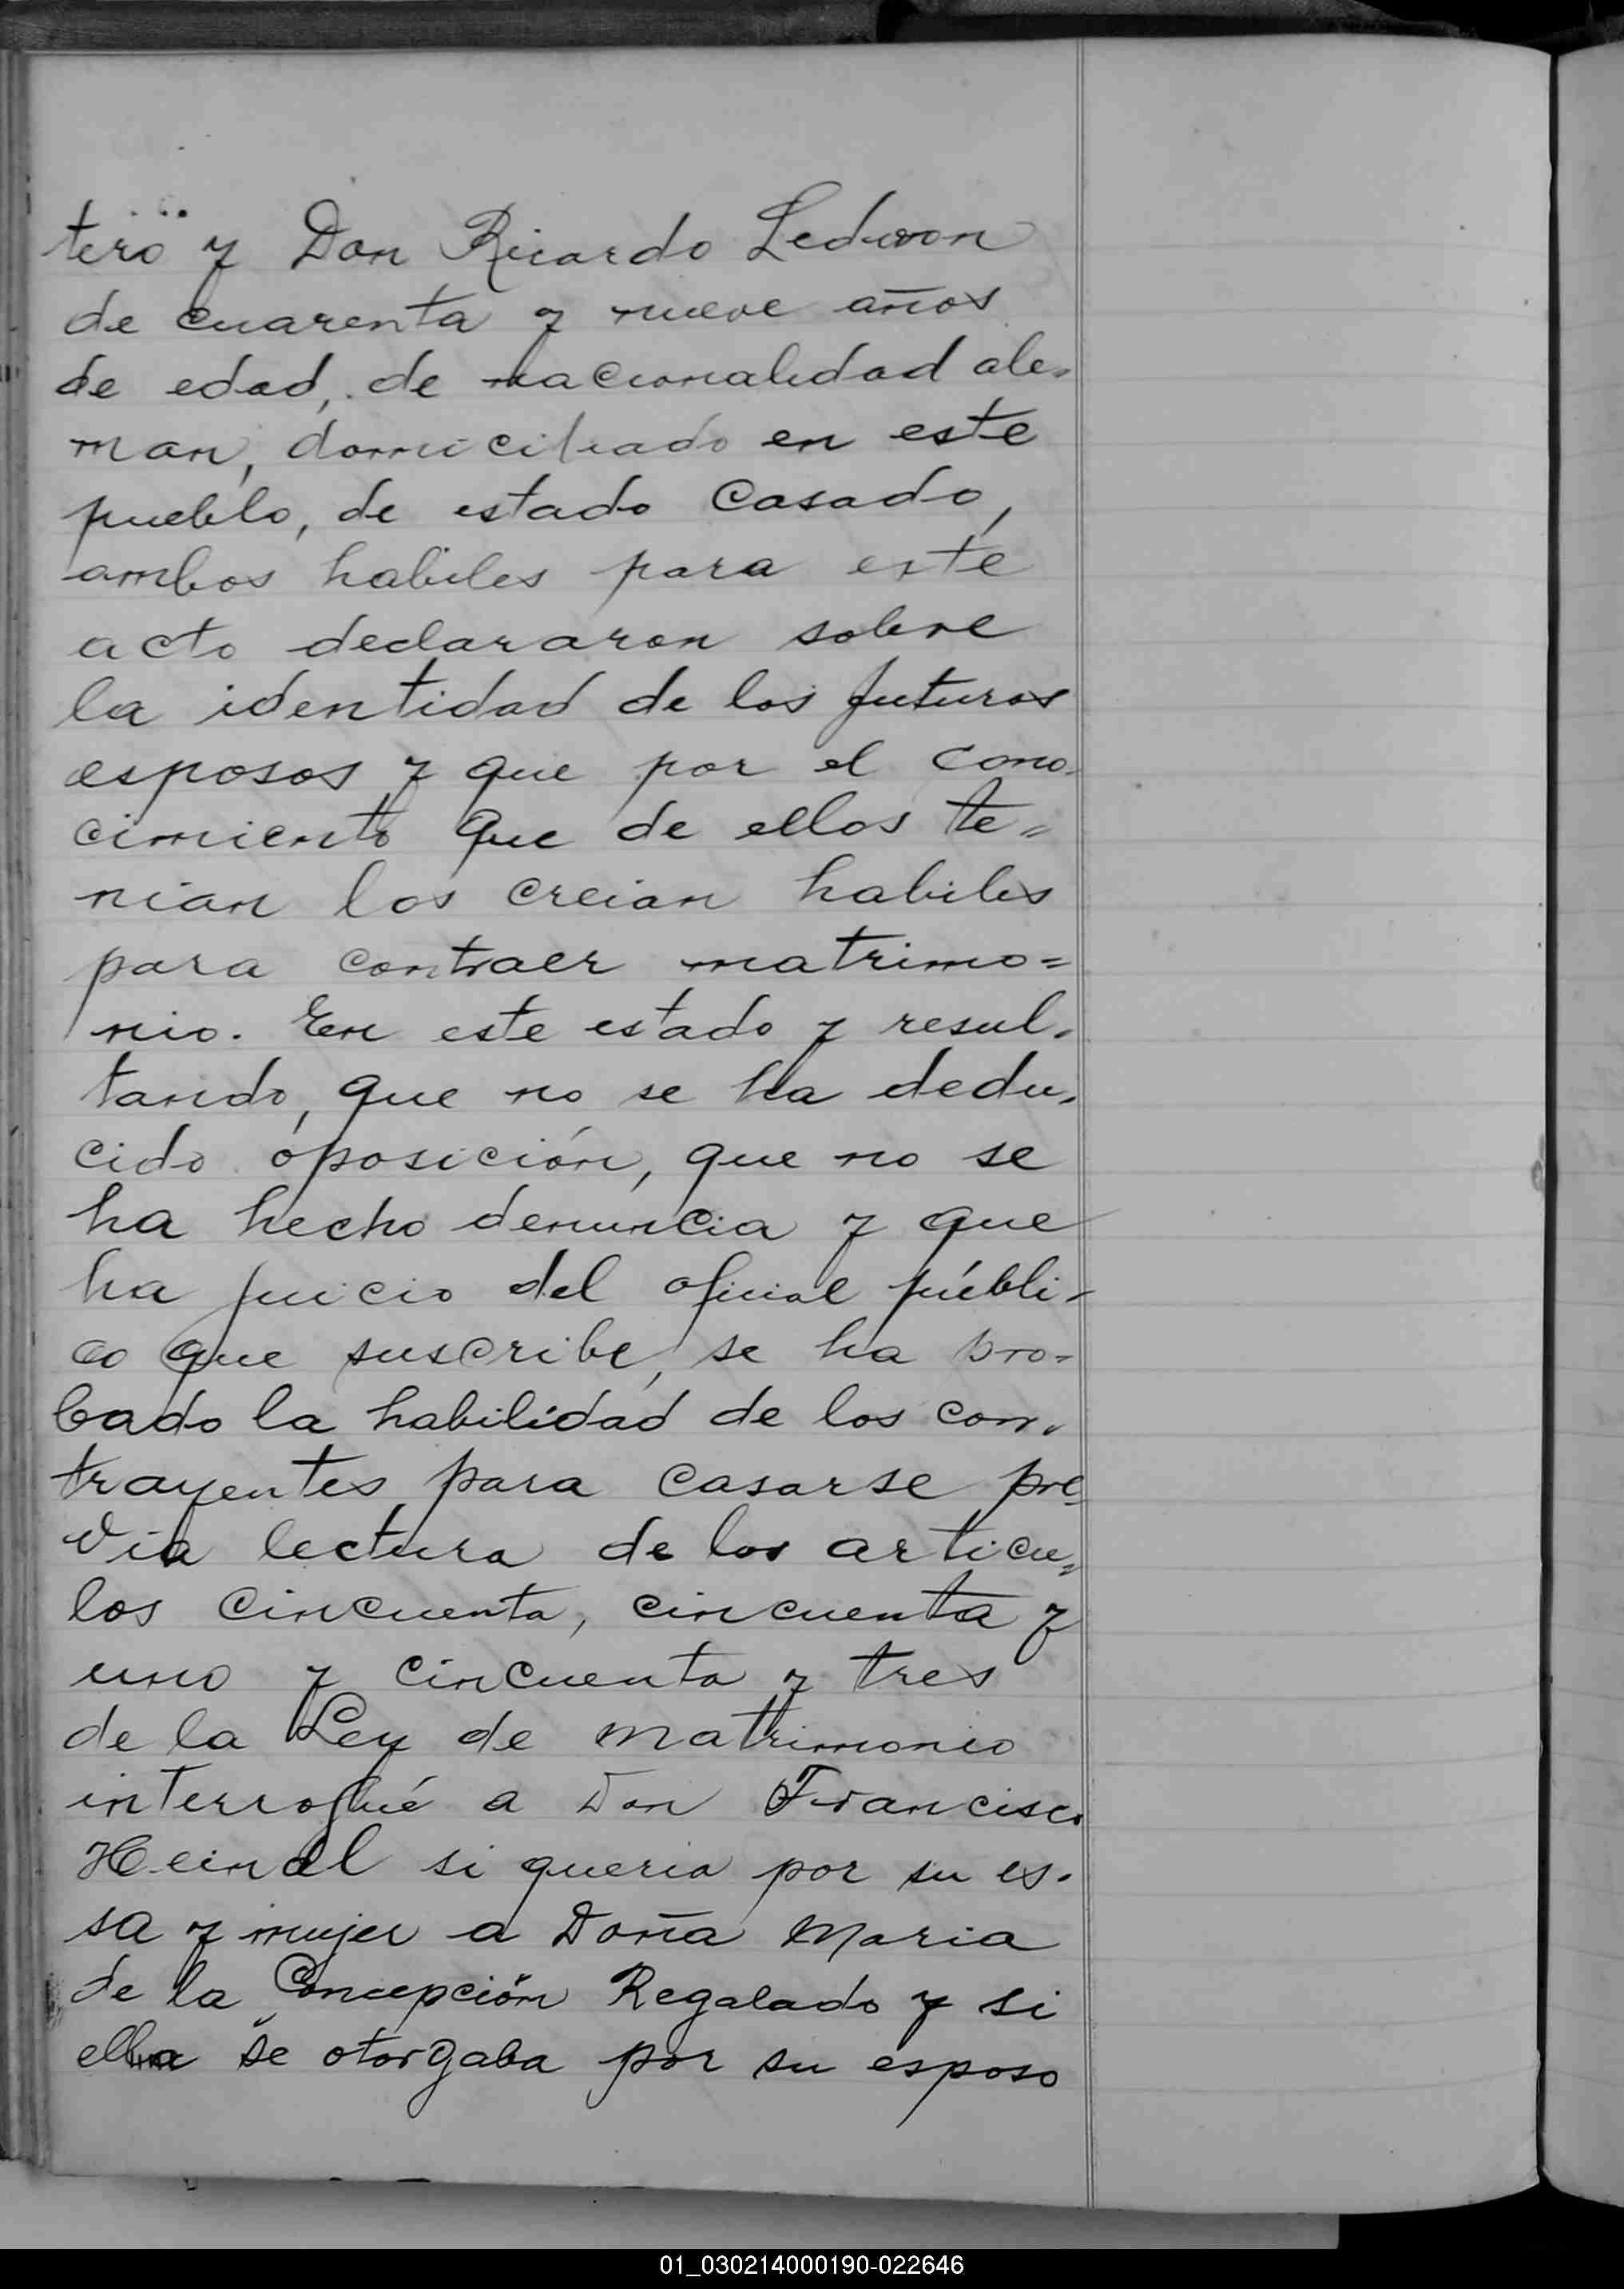 tero y Don Ricardo Leduvon
de cuarenta y nueve años
de edad, de nacionalidad ale-
man, domiciliado en este
pueblo, de estado Casado,
ambos habiles para este
acto declararon sobre
la identidad de los futuros
esposos y que por el cono-
cimiento que de ellos te=
nian los creian habiles
para contraer matrimo=
nio. En este estado y resul-
tando, que no se ha dedu-
cido oposición, que no se
ha hecho denuncia y que
ha juicio del oficial públi-
co que suscribe, se ha pro=
bado la habilidad de los con-
trayentes para casarse pre-
via lectura de los articu=
los cincuenta, cincuenta y
uno y cincuenta y tres
de la Ley de matrimonio
interrogué a Don Francisco
Heindl si queria por su es-
sa y mujer a Doña Maria
de la Concepción Regalado y si
ella se otorgaba por su esposo
01_030214000190-022646